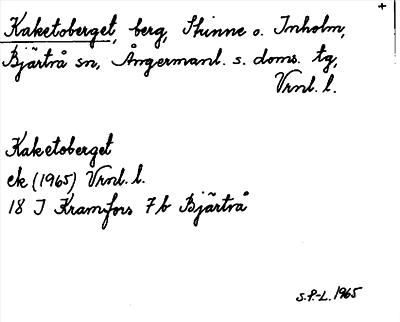 +
Kaketoberget, berg, Skinne o. Inholm,
Bjärtrå sn, Ångermanl. s. doms. tg,
Vrnl. l.
Kaketoberget
ek (1965) Vrnl. l.
18 I Kramfors 7b Bjärtrå
S.P-L. 1965